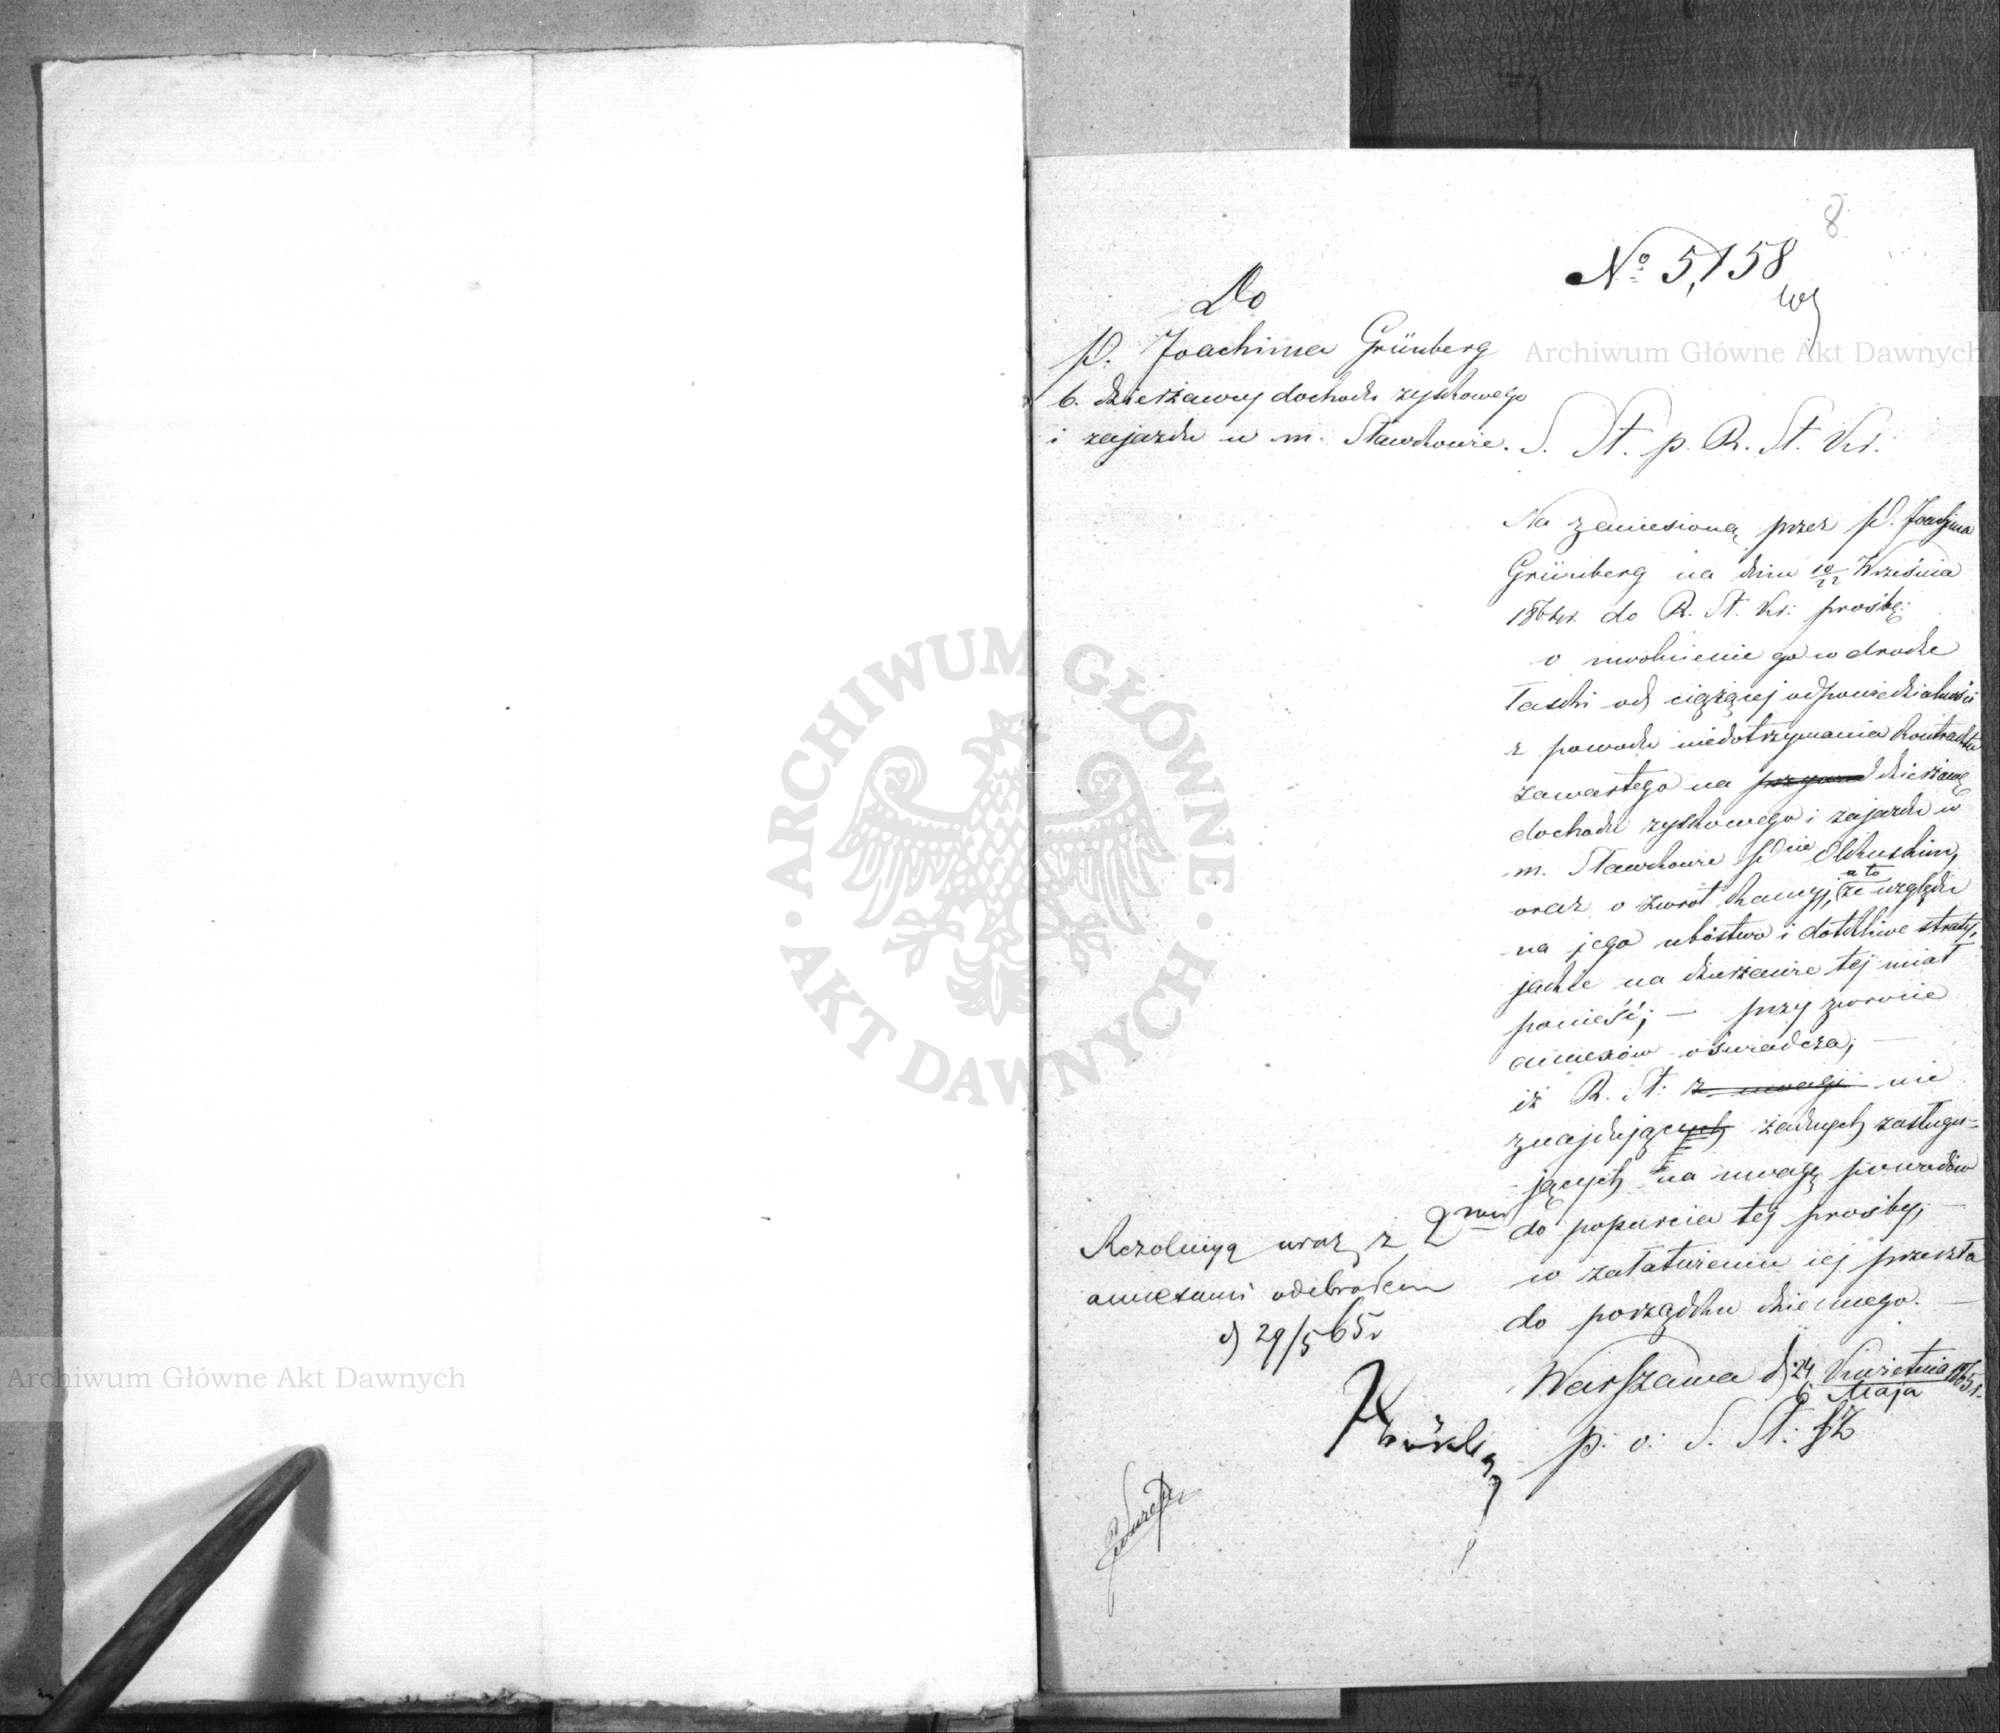 8
No 5,158
Do
P. Joachima Grünberg
b. dzierżawcy dochodu zyskowego
i zajazdu w m. Sławkowie.
S. St. p. R. St. Kr.
Na zaniesioną przez P. Joachima
Grünberg na dniu 10/22 Września
1864r. do R. St. Kr. prośbę:
o uwolnienie go w drodze
łaski od ciążącej odpowiedzialności
z powodu niedotrzymania kontraktu
zawartego na dzierżawę
dochodu zyskowego i zajazdu w
m. Sławkowie Pcie Olkuskim,
oraz o zwrot kaucyi, a to ze względu
na jego ubóstwo i dotkliwe straty,
jakie na dzierżawie tej miał
ponieść; — przy zwrocie
annexów oświadcza, —
iż R. St. z uwagi nie
znajdujących żadnych zasługu-
jących na uwagę powodów
do poparcia tej prośby, —
w załatwieniu jej przeszła
do porządku dziennego. —
Warszawa d. 24 Kwietnia / 6 Maja 1865r.
p. o. S. St.
Rezolucyą wraz z 2ma
annexami odebrałem
d 29/5 65r
Archiwum Główne Akt Dawnych
Archiwum Główne Akt Dawnych
ARCHIWUM GŁÓWNE · AKT DAWNYCH ·